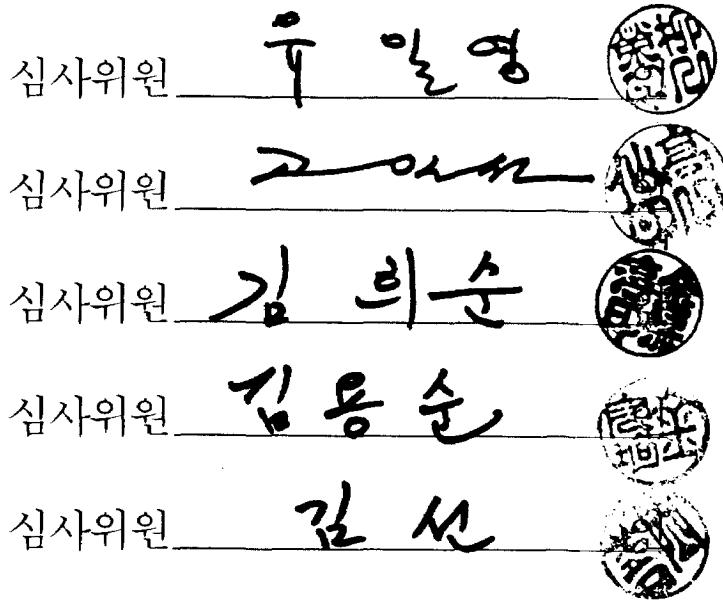 심사위원 유일영
심사위원
심사위원 김희순
심사위원 김용순
심사위원 길선